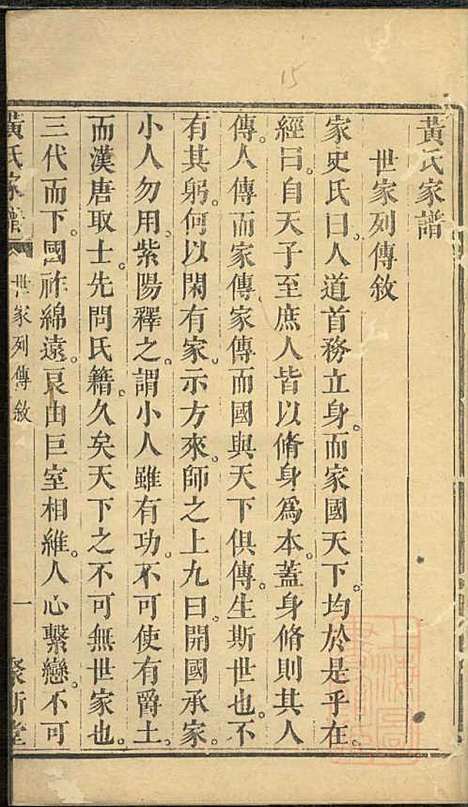 15
黃氏家譜
世家列傳敘
家史氏曰人道首務立身而家國天下均於是乎在
經曰自天子至庶人皆以脩身爲本蓋身脩則其人
傳人傳而家傳家傳而國與天下俱傳生斯世也不
有其躬何以閑有家示方來師之上九曰開國承家
小人勿用紫陽釋之謂小人雖有功不可使有爵土
而漢唐取士先問氏籍久矣天下之不可無世家也
三代而下國祚綿遠良由巨室相維人心繫戀不可
黃氏家譜 世家列傳敘 一 聚斯堂